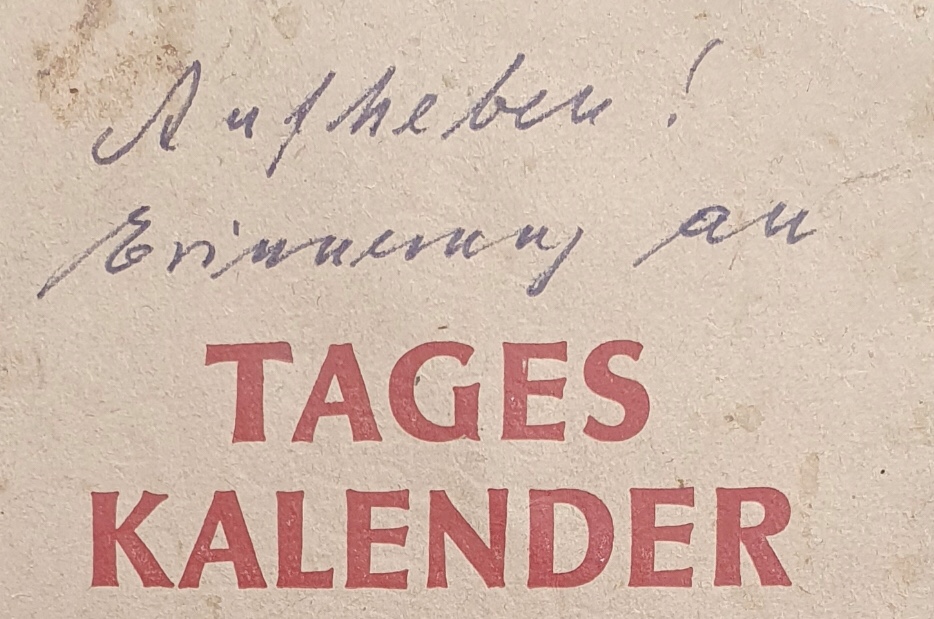 Aufheben!
Erinnerung an
TAGES
KALENDER